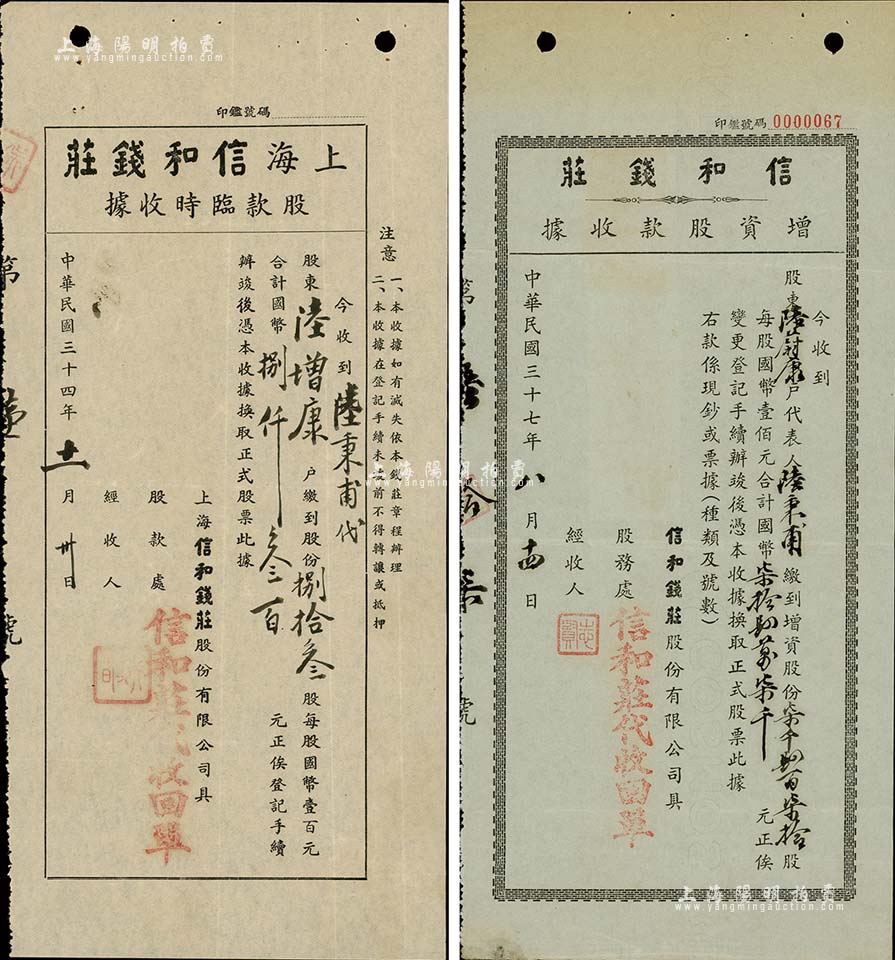 上海陽明拍賣
www.yangmingauction.com
印鑑號碼
上海信和錢莊
股款臨時收據
注意
一、本收據如有滅失依本錢莊章程辦理
二、本收據在登記手續未
前不得轉讓或抵押
今收到陸秉甫代
股東陸增康戶繳到股份捌拾叁股每股國幣壹百元
合計國幣捌仟叁百元正俟登記手續
辦竣後憑本收據換取正式股票此據
上海信和錢莊股份有限公司具
股款處
經收人
中華民國三十四年十一月卅日
第
號
信和莊代收回單
印鑑號碼 0000067
信和錢莊
增資股款收據
今收到
股東陸蔚康戶代表人陸秉甫繳到增資股份柒千肆百柒拾股
每股國幣壹佰元合計國幣柒拾肆萬柒千元正俟
變更登記手續辦竣後憑本收據換取正式股票此據
右款係現鈔或票據(種類及號數)
信和錢莊股份有限公司具
股務處
經收人
中華民國三十七年八月十四日
第
拾
柒
號
信和莊代收回單
上海陽明拍賣
www.yangmingauction.com
上海陽明拍賣
www.yangmingauction.com